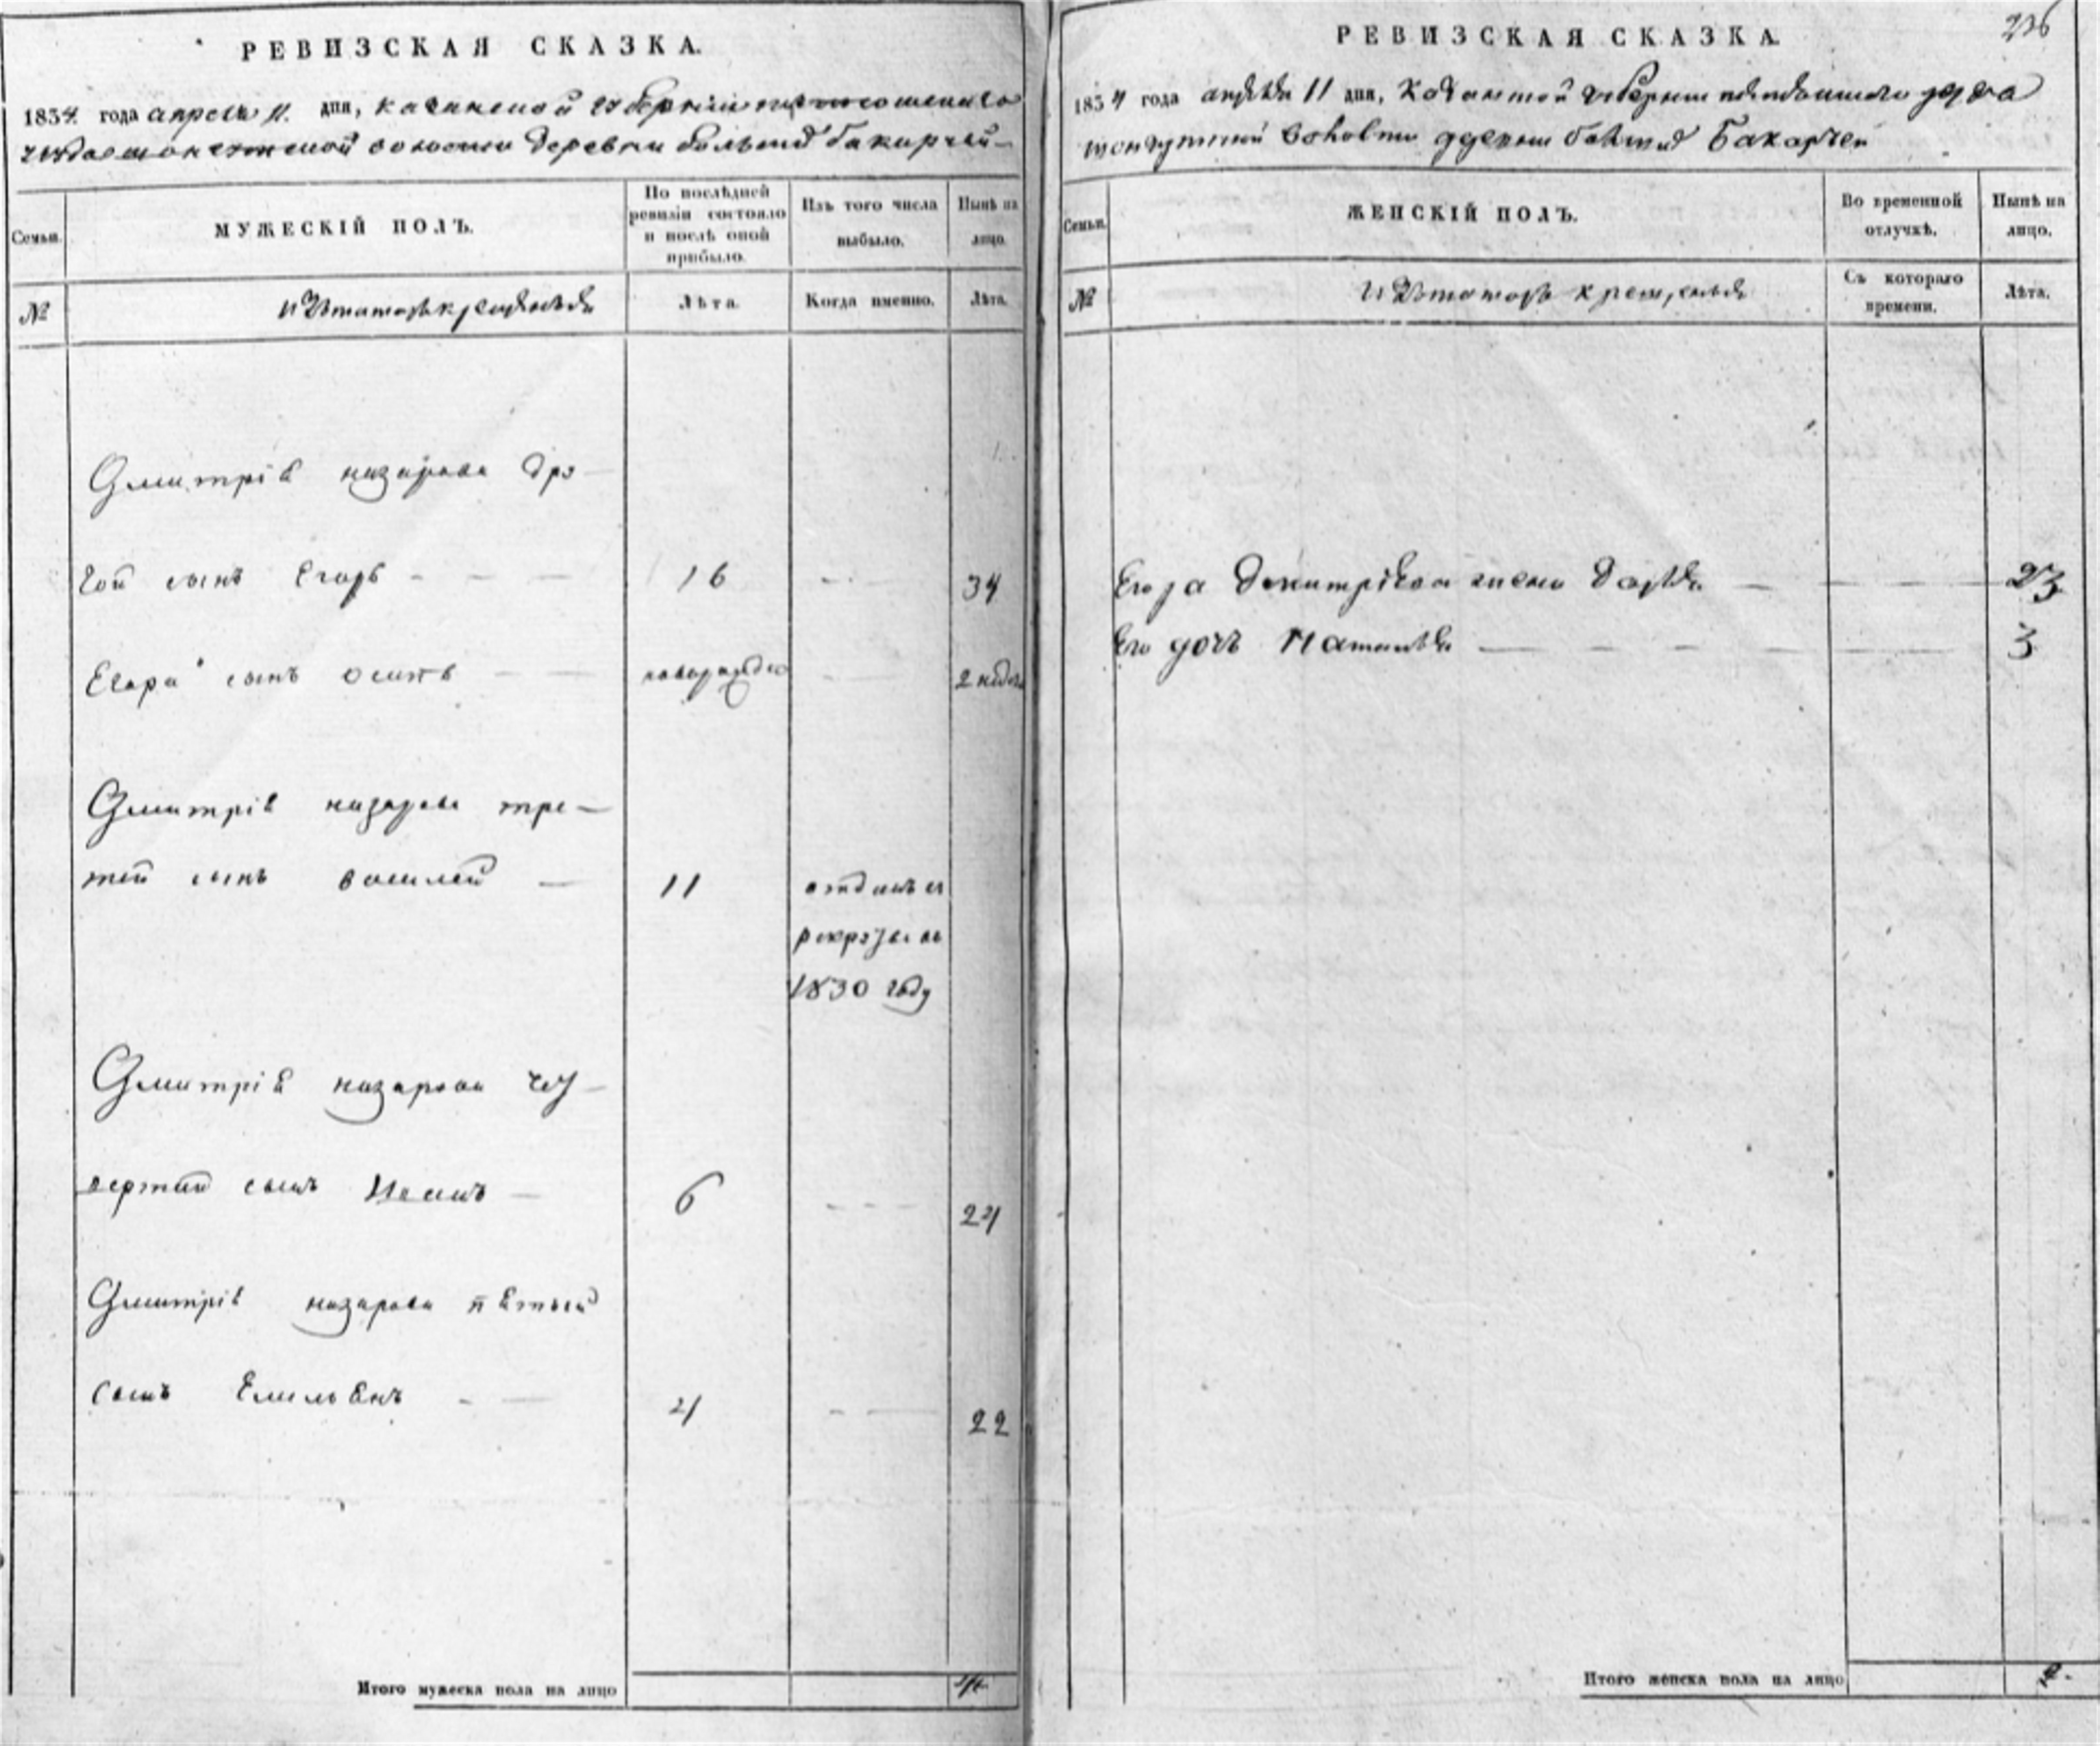 РЕВИЗСКАЯ СКАЗКА.
1834 года апреля 11 дня, казанской губернии
волости деревни большихъ бакырчей
Семьи.
МУЖЕСКІЙ ПОЛЪ.
По послѣдней ревизіи состояло и послѣ оной прибыло.
Изъ того числа выбыло.
Нынѣ на лицо.
№
крещеныя
Лѣта.
Когда именно.
Лѣта.
Дмитрія назарова дру-
гой сынъ Егоръ 16 34
Егора сынъ осипъ новорожденъ 2 недел
Дмитрія назарова тре-
тей сынъ василей 11 отданъ въ
рекруты въ
1830 году
Дмитрія назарова чет-
вертый сынъ Иванъ 6 24
Дмитрія назарова пятый
сынъ Емельянъ 4 22
Итого мужеска пола на лицо 4
236
РЕВИЗСКАЯ СКАЗКА.
1834 года апреля 11 дня, Казанской губернии уезда
волости деревни Бакарчей
Семьи.
ЖЕНСКІЙ ПОЛЪ.
Во временной отлучкѣ.
Нынѣ на лицо.
№
крещеныя
Съ котораго времени.
Лѣта.
Егора Дмитріева жена Дарья 23
Его дочь Наталья 3
Итого женска пола на лицо 2